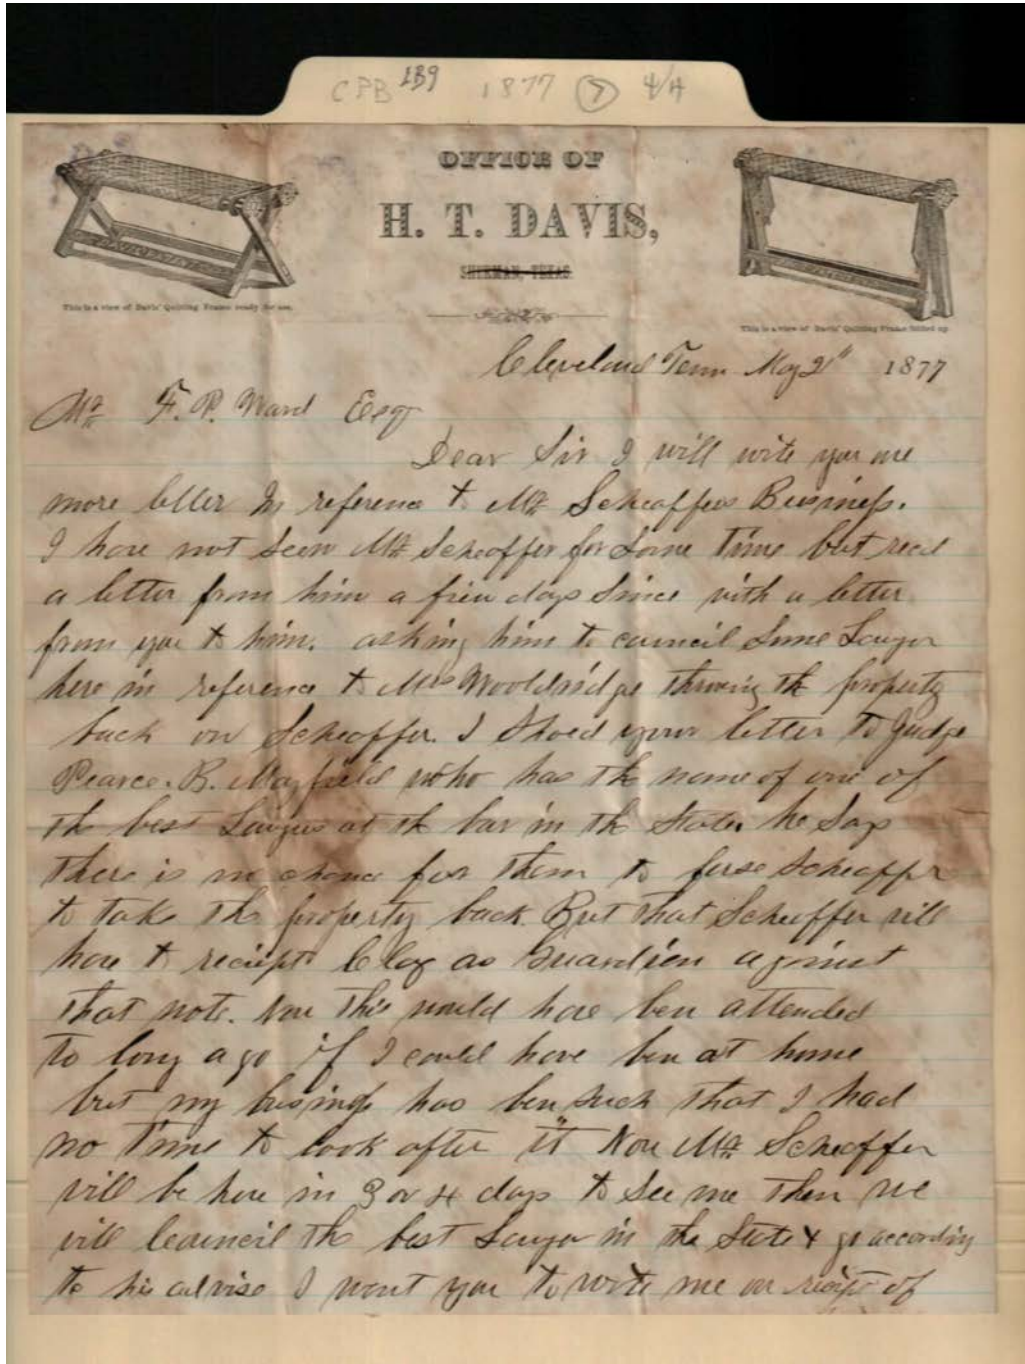 CPB 189 1877 7 4/4
OFFICE OF
H. T. DAVIS,
SHERMAN, TEXAS
This is a view of Davis' Quilting Frame ready for use.
This is a view of Davis' Quilting Frame folded up.
Cleveland Tenn May 21" 1877
Mr F. P. Ward Esqr
Dear Sir I will wite you one
more letter In reference to Mr Scheaffers Business.
I have not seen Mr Scheaffer for Some Time but recd
a letter from him a few days Since with a letter
from you to him. asking him to council Some Lawyer
here in reference to Mrs Wooldridge throwing the property
back on Scheaffer. I Shoed your letter to Judge
Pearce. B. Mayfield who has the name of one of
the best Lawyers at the bar in the State. he Says
there is no chance for them to forse Scheaffer
to take the property back. But that Scheaffer will
have to reciept Clay as Guardien against
that note. Now this would have ben attended
to long a go if I could have ben at home
but my business has ben such that I had
no Time to look after it Now Mr Scheaffer
will be here in 3 or 4 days to See me then we
will Council the best Lawyer in the State & go according
to his advise I want you to write me on reciept of